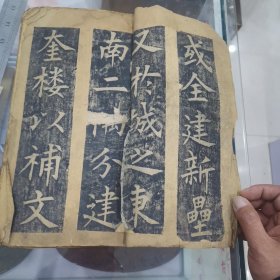 或仝建新壘
又於城之東
南二隅分建
奎楼以補文